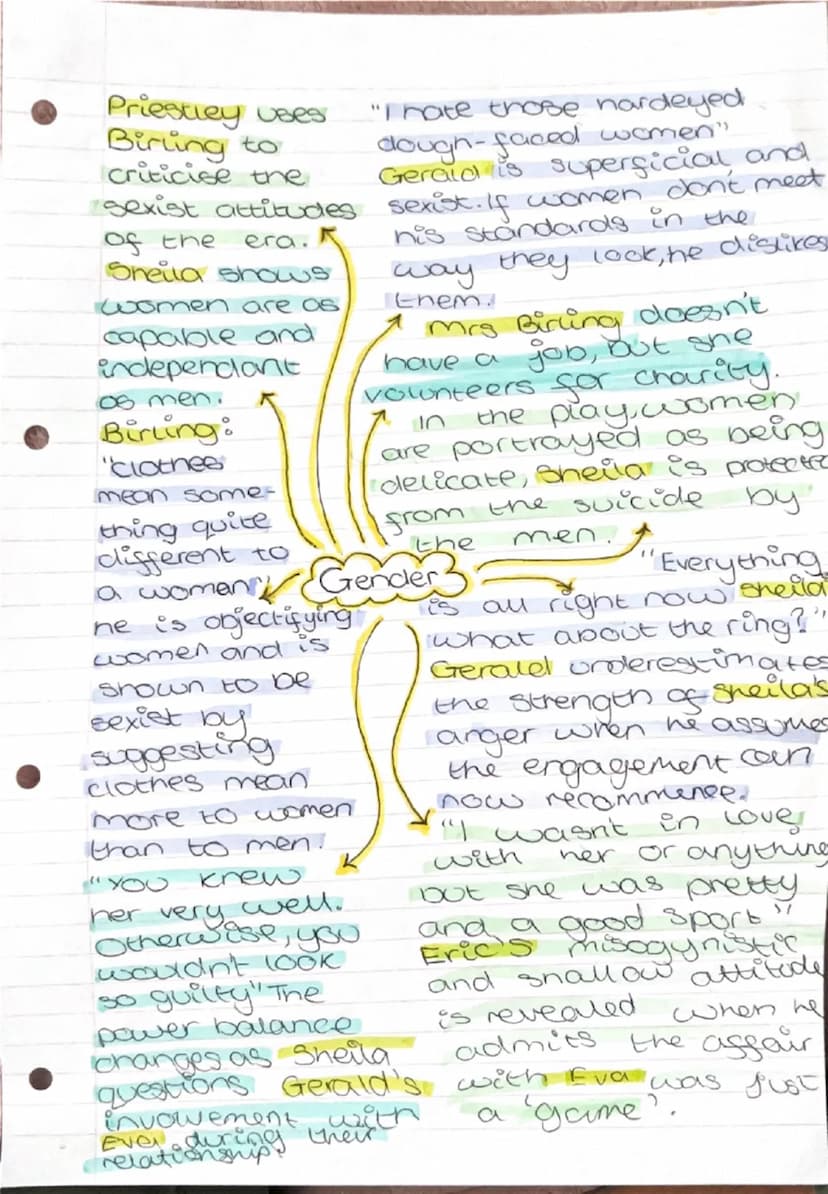 Priestley uses
Birling to
criticise the
sexist attitudes
of the era.
Sheila shows
women are as
capable and
independant
as men.
Birling:
"clothes
mean some-
thing quite
different to
a woman"
he is objectifying
women and is
shown to be
sexist by
suggesting
clothes mean
more to women
than to men.
"You knew
her very well.
Otherwise, you
wouldn't look
so guilty" The
power balance
changes as Sheila
questions Gerald's
involvement with
Eva during their
relationship.
Gender
"I hate those hardeyed
dough-faced women"
Gerald is superficial and
sexist. If women don't meet
his standards in the
way they look, he dislikes
them.
Mrs Birling doesn't
have a job, but she
volunteers for charity.
In the play, women
are portrayed as being
delicate, Sheila is protected
from the suicide by
the men.
"Everything
is all right now Sheila
what about the ring?"
Gerald underestimates
the strength of Sheila's
anger when he assumes
the engagement can
now recommence.
"I wasn't in love
with her or anything
but she was pretty
and a good sport"
Eric's misogynistic
and shallow attitude
is revealed when he
admits the affair
with Eva was just
a 'game'.